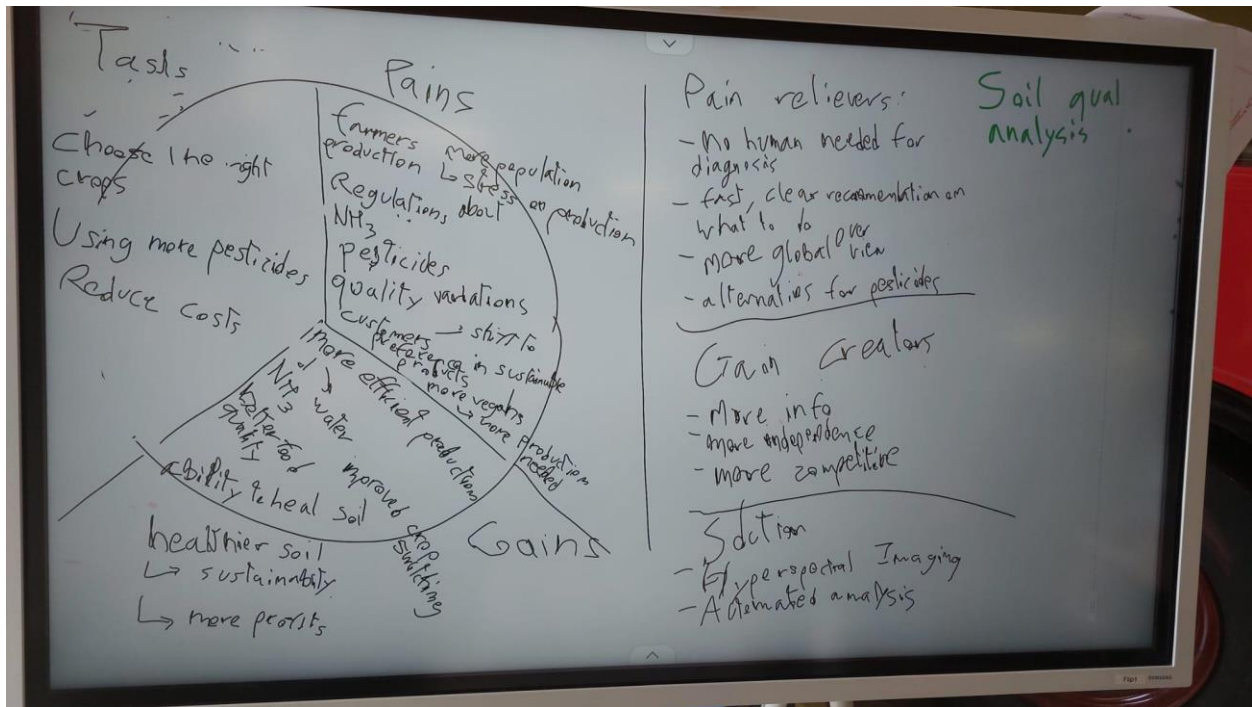 Tasks
Choose the right
crops
Using more pesticides
Reduce costs
Pains
farmers more population
production ↳ stress on production
Regulations about
NH3
pesticides
quality variations
customers → shift to
preference in sustainable
products
more vegans
→ more production
needed
more efficient productions
NH3 water
better food
quality
improved crop
ability to heal soil
Gains
healthier soil
↳ sustainability
↳ more profits
Pain relievers:
- No human needed for
diagnosis
- fast, clear recommendation on
what to do
- more global over
view
- alternatives for pesticides
Gain creators
- More info
- more independence
- more competitive
Solution
- Hyperspectral Imaging
- Automated analysis
Soil qual
analysis
Flip
SAMSUNG